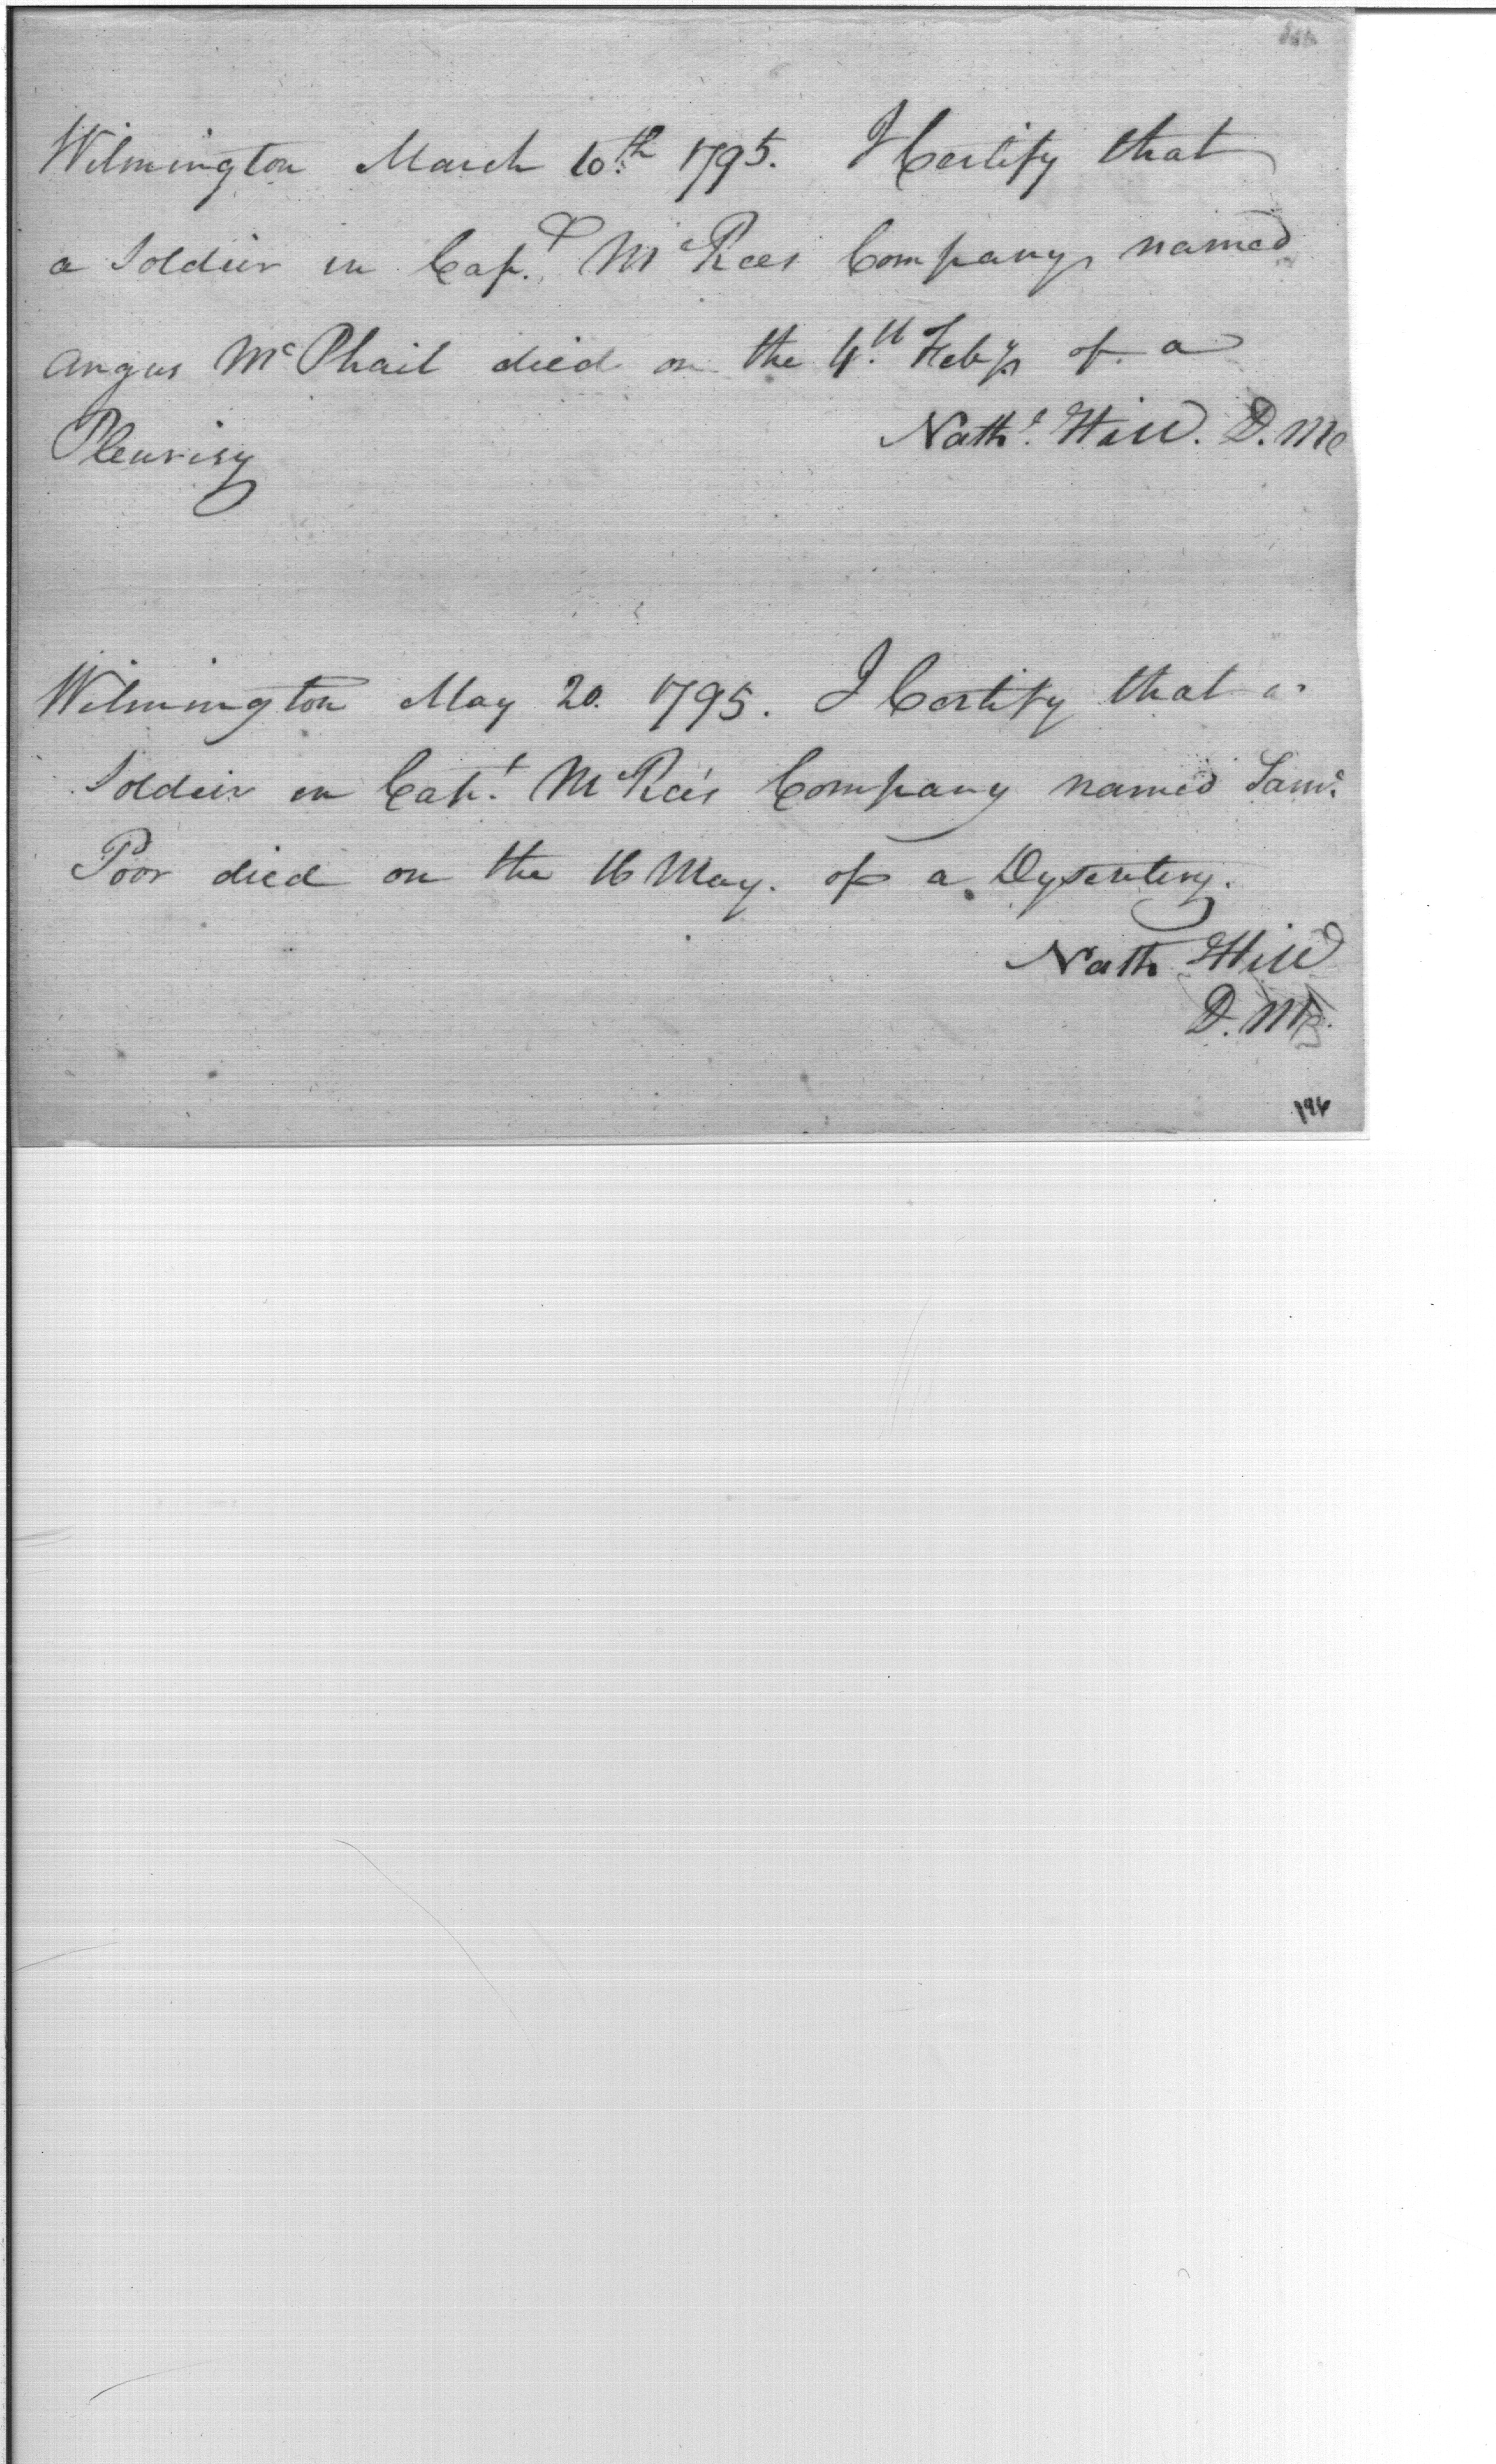 Wilmington March 10th 1795. I Certify that
a Soldier in Capt. McRees Company named
Angus McPhail died on the 4th Feby of a
Pleurisy Nathl. Hill. D. M
Wilmington May 20. 1795. I Certify that a
Soldier in Capt. McRee's Company named Saml.
Poor died on the 16 May. of a Dysentery.
Nath Hill
D. M
196